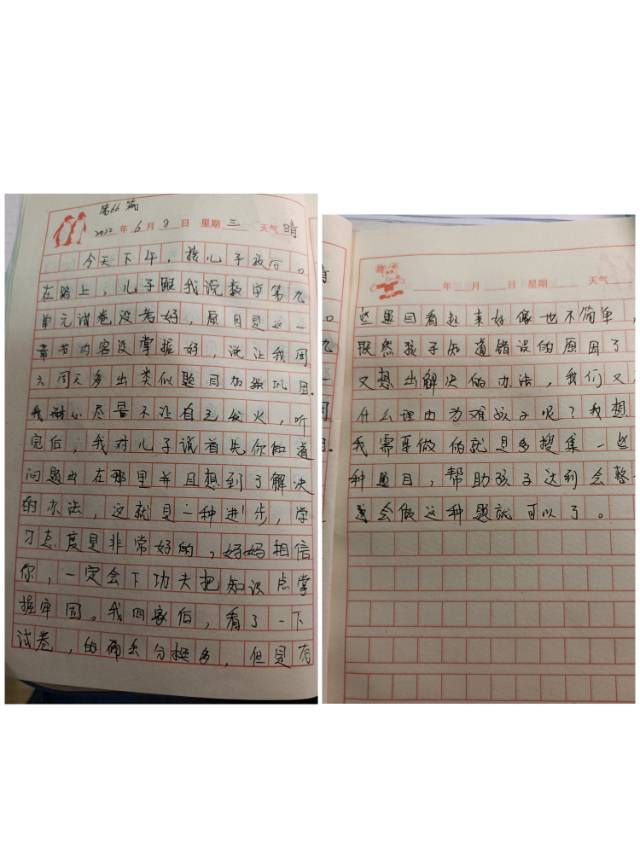 第66篇
2022年6月9日 星期三 天气晴
今天下午,接儿子放学。
在路上,儿子跟我说数学第九
单元试卷没考好,原因是这一
章节内容没掌握好,说让我周
六周天多出类似题目加强巩固。
我耐心尽量不让自己发火,听
完后,我对儿子说首先你知道
问题出在那里并且想到了解决
的办法,这就是一种进步,学
习态度是非常好的,妈妈相信
你,一定会下功夫把知识点掌
握牢固。我回家后,看了一下
试卷,的确丢分挺多,但是有
年 月 日 星期 天气
些题目看起来好像也不简单,
既然孩子知道错误的原因了
又想出解决的办法,我们又
什么理由为难孩子呢?我想
我需要做的就是多搜集一些
种题目,帮助孩子达到会
会做这种题就可以了。